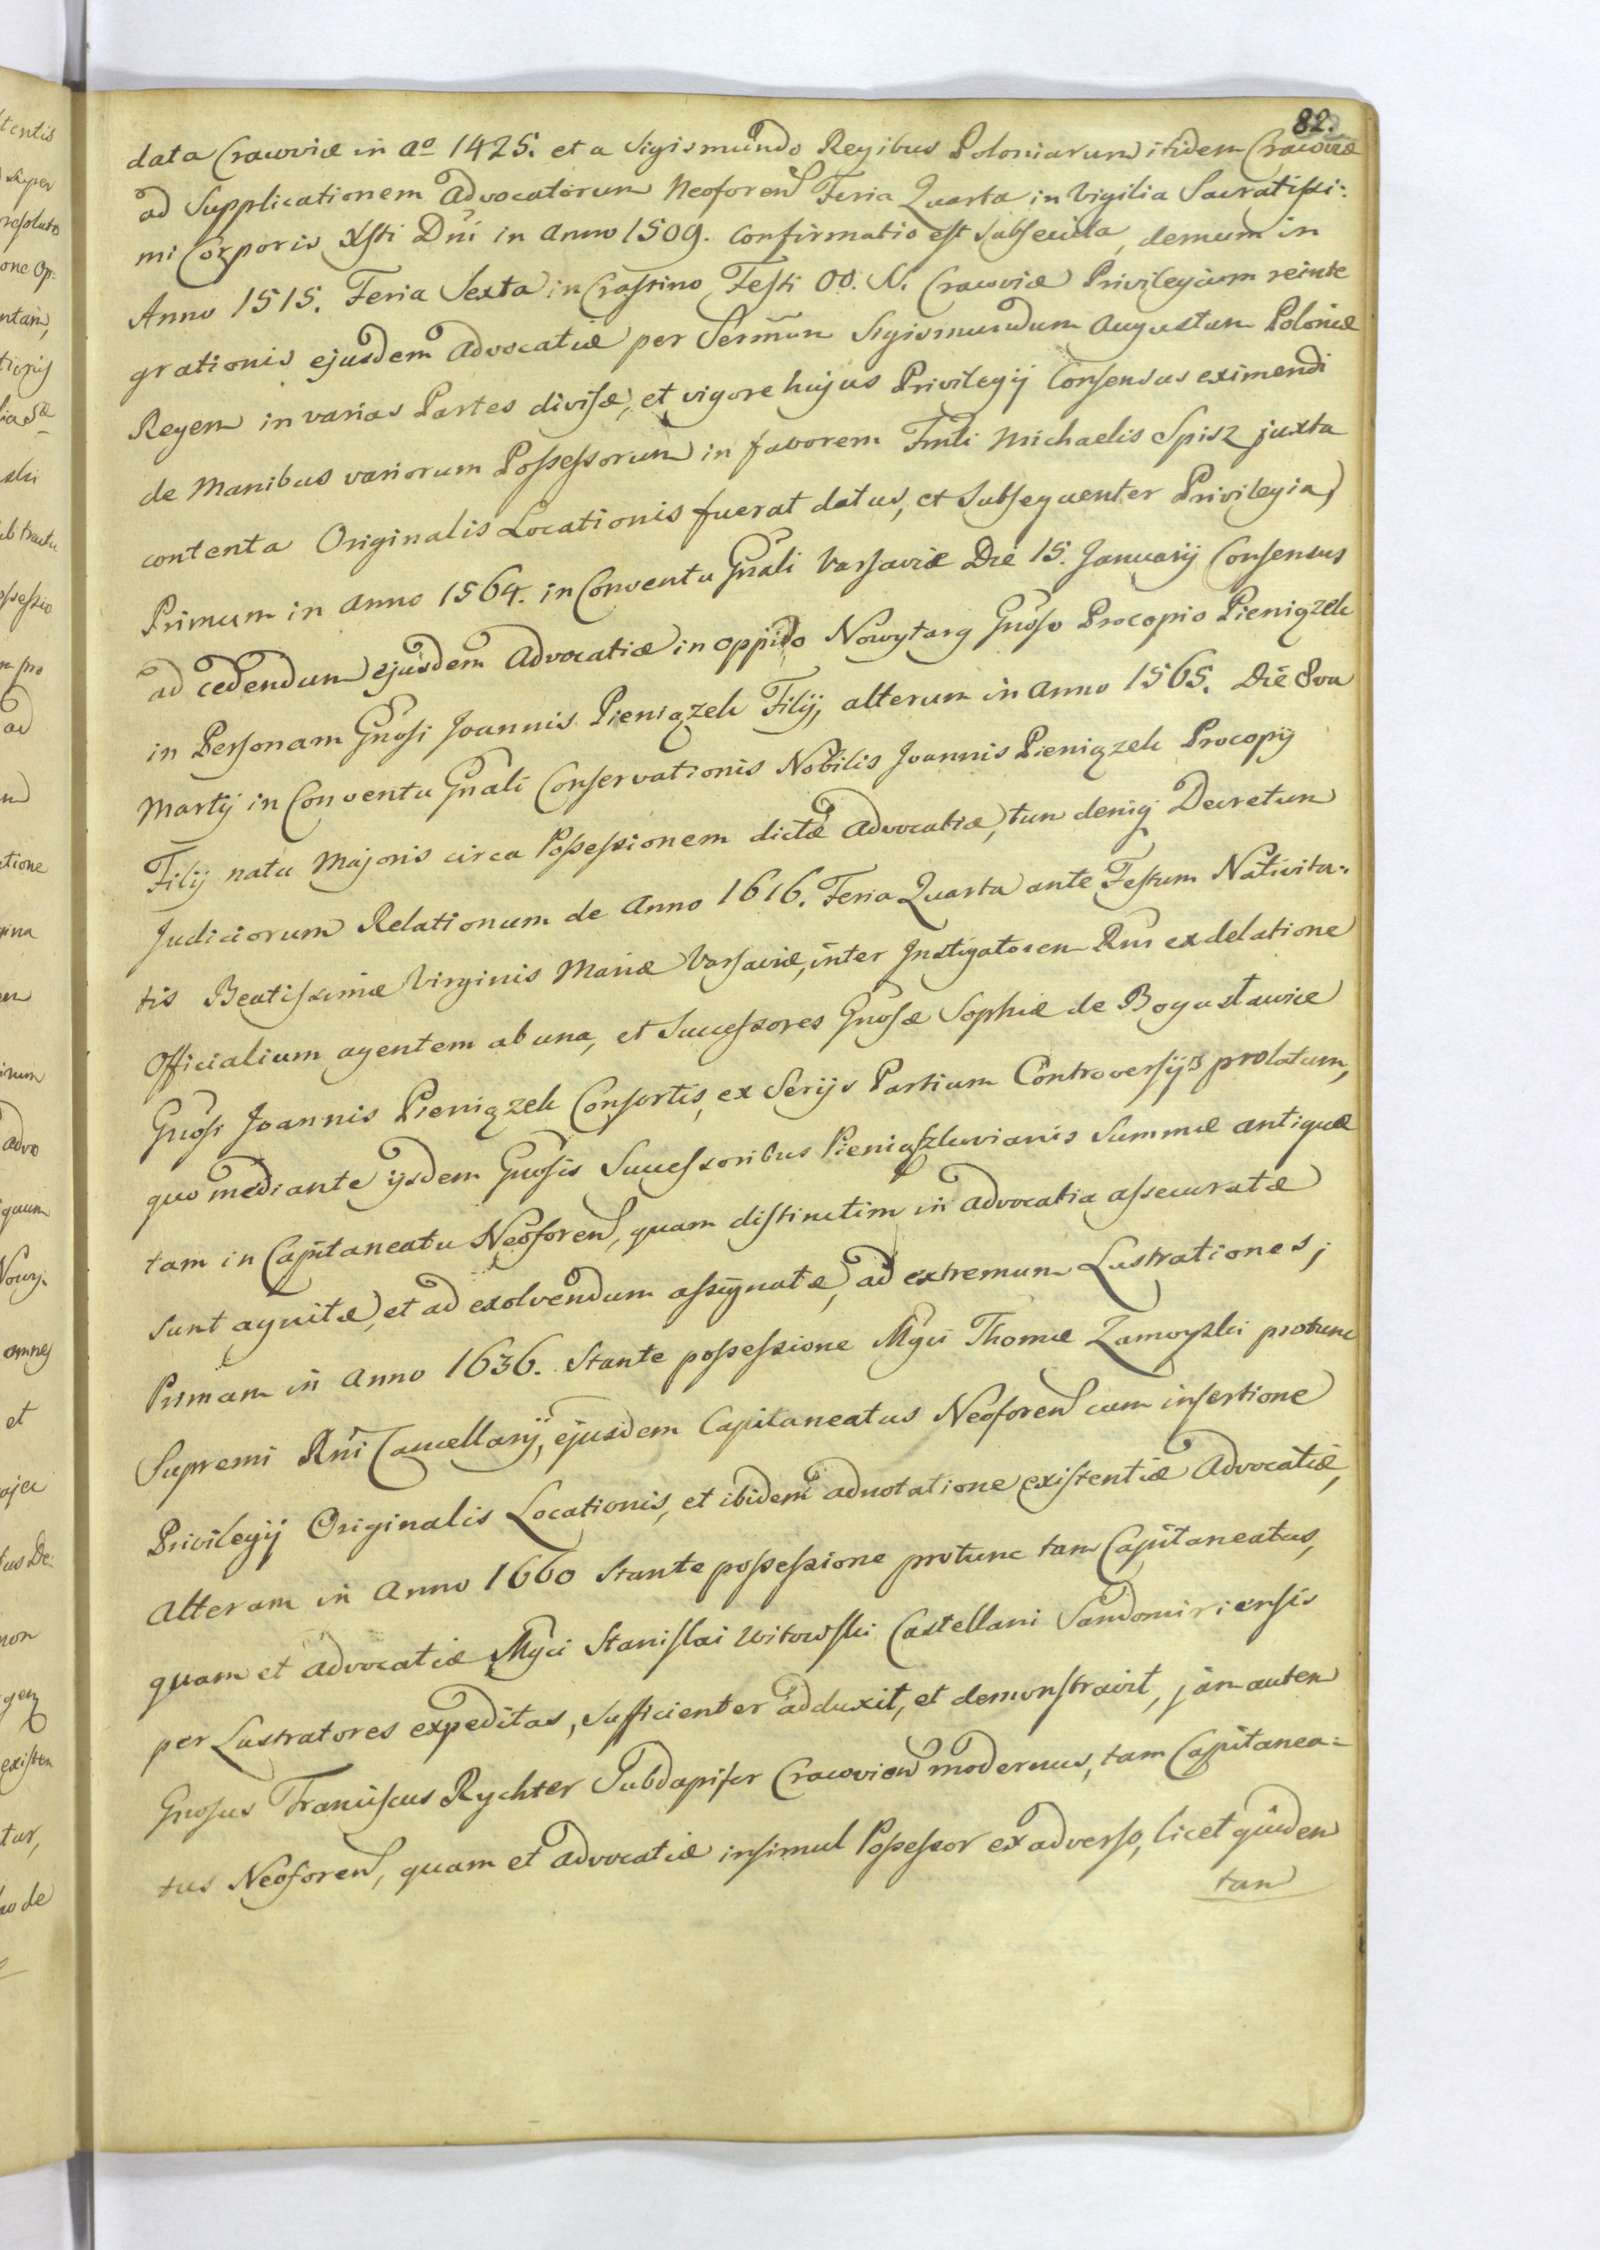 82.
data Cracoviæ in Aº 1425. et a Sigismundo Regibus Poloniarum itidem Cracoviæ
ad Supplicationem Advocatorum Neoforen Feria Quarta in Vigilia Sacratissi:
mi Corporis Xsti Dni in Anno 1509. Confirmatio est Subsecuta, demum in
Anno 1515. Feria Sexta in Crastino Festi OO. SS. Cracoviæ Privilegium reinte
grationis ejusdem Advocatiæ per Sermum Sigismundum Augustum Poloniæ
Regem in varias Partes divisæ, et vigore hujus Privilegij Consensus eximendi
de Manibus variorum Possessorum in favorem Fmli Michaelis Spisz juxta
contenta Originalis Locationis fuerat datus, et Subsequenter Privilegia,
Primum in Anno 1564. in Conventu Gnali Varsaviæ Die 15. Januarij Consensus
ad cedendum ejusdem Advocatiæ in oppido Nowytarg Gnoso Procopio Pieniązek
in Personam Gnosi Joannis Pieniązek Filij, alterum in Anno 1565. Die 8va
Martij in Conventu Gnali Conservationis Nobilis Joannis Pieniązek Procopij
Filij natu Majoris circa Possessionem dictæ Advocatiæ, tum deniq Decretum
Judiciorum Relationum de Anno 1616. Feria Quarta ante Festum Nativita:
tis Beatissimæ Virginis Mariæ Varsaviæ, inter Instigatorem Rni ex delatione
Officialium agentem ab una, et Successores Gnosæ Sophiæ de Bogusławice
Gnosi Joannis Pieniązek Consortis, ex Serijs Partium Controversijs prolatum,
quo mediante ijsdem Gnosis Successoribus Pieniąszkovianis Summæ antiquæ
tam in Capitaneatu Neoforen, quam distinctim in Advocatia assecuratæ
sunt agnitæ, et ad exolvendum assignatæ, ad extremum Lustrationes;
Primam in Anno 1636. Stante possessione Mgci Thomæ Zamoyski protunc
Supremi Rni Cancellarij, ejusdem Capitaneatus Neoforen cum insertione
Privilegij Originalis Locationis, et ibidem adnotatione existentiæ Advocatiæ,
Alteram in Anno 1660 Stante possessione protunc tam Capitaneatus,
quam et Advocatiæ Mgci Stanislai Witowski Castellani Sandomiriensis
per Lustratores expeditas, sufficienter adduxit, et demonstravit, jam autem
Gnosus Franciscus Rychter Subdapifer Cracovien modernus, tam Capitanea:
tus Neoforen, quam et Advocatiæ insimul Possessor ex adverso, licet quidem
tam